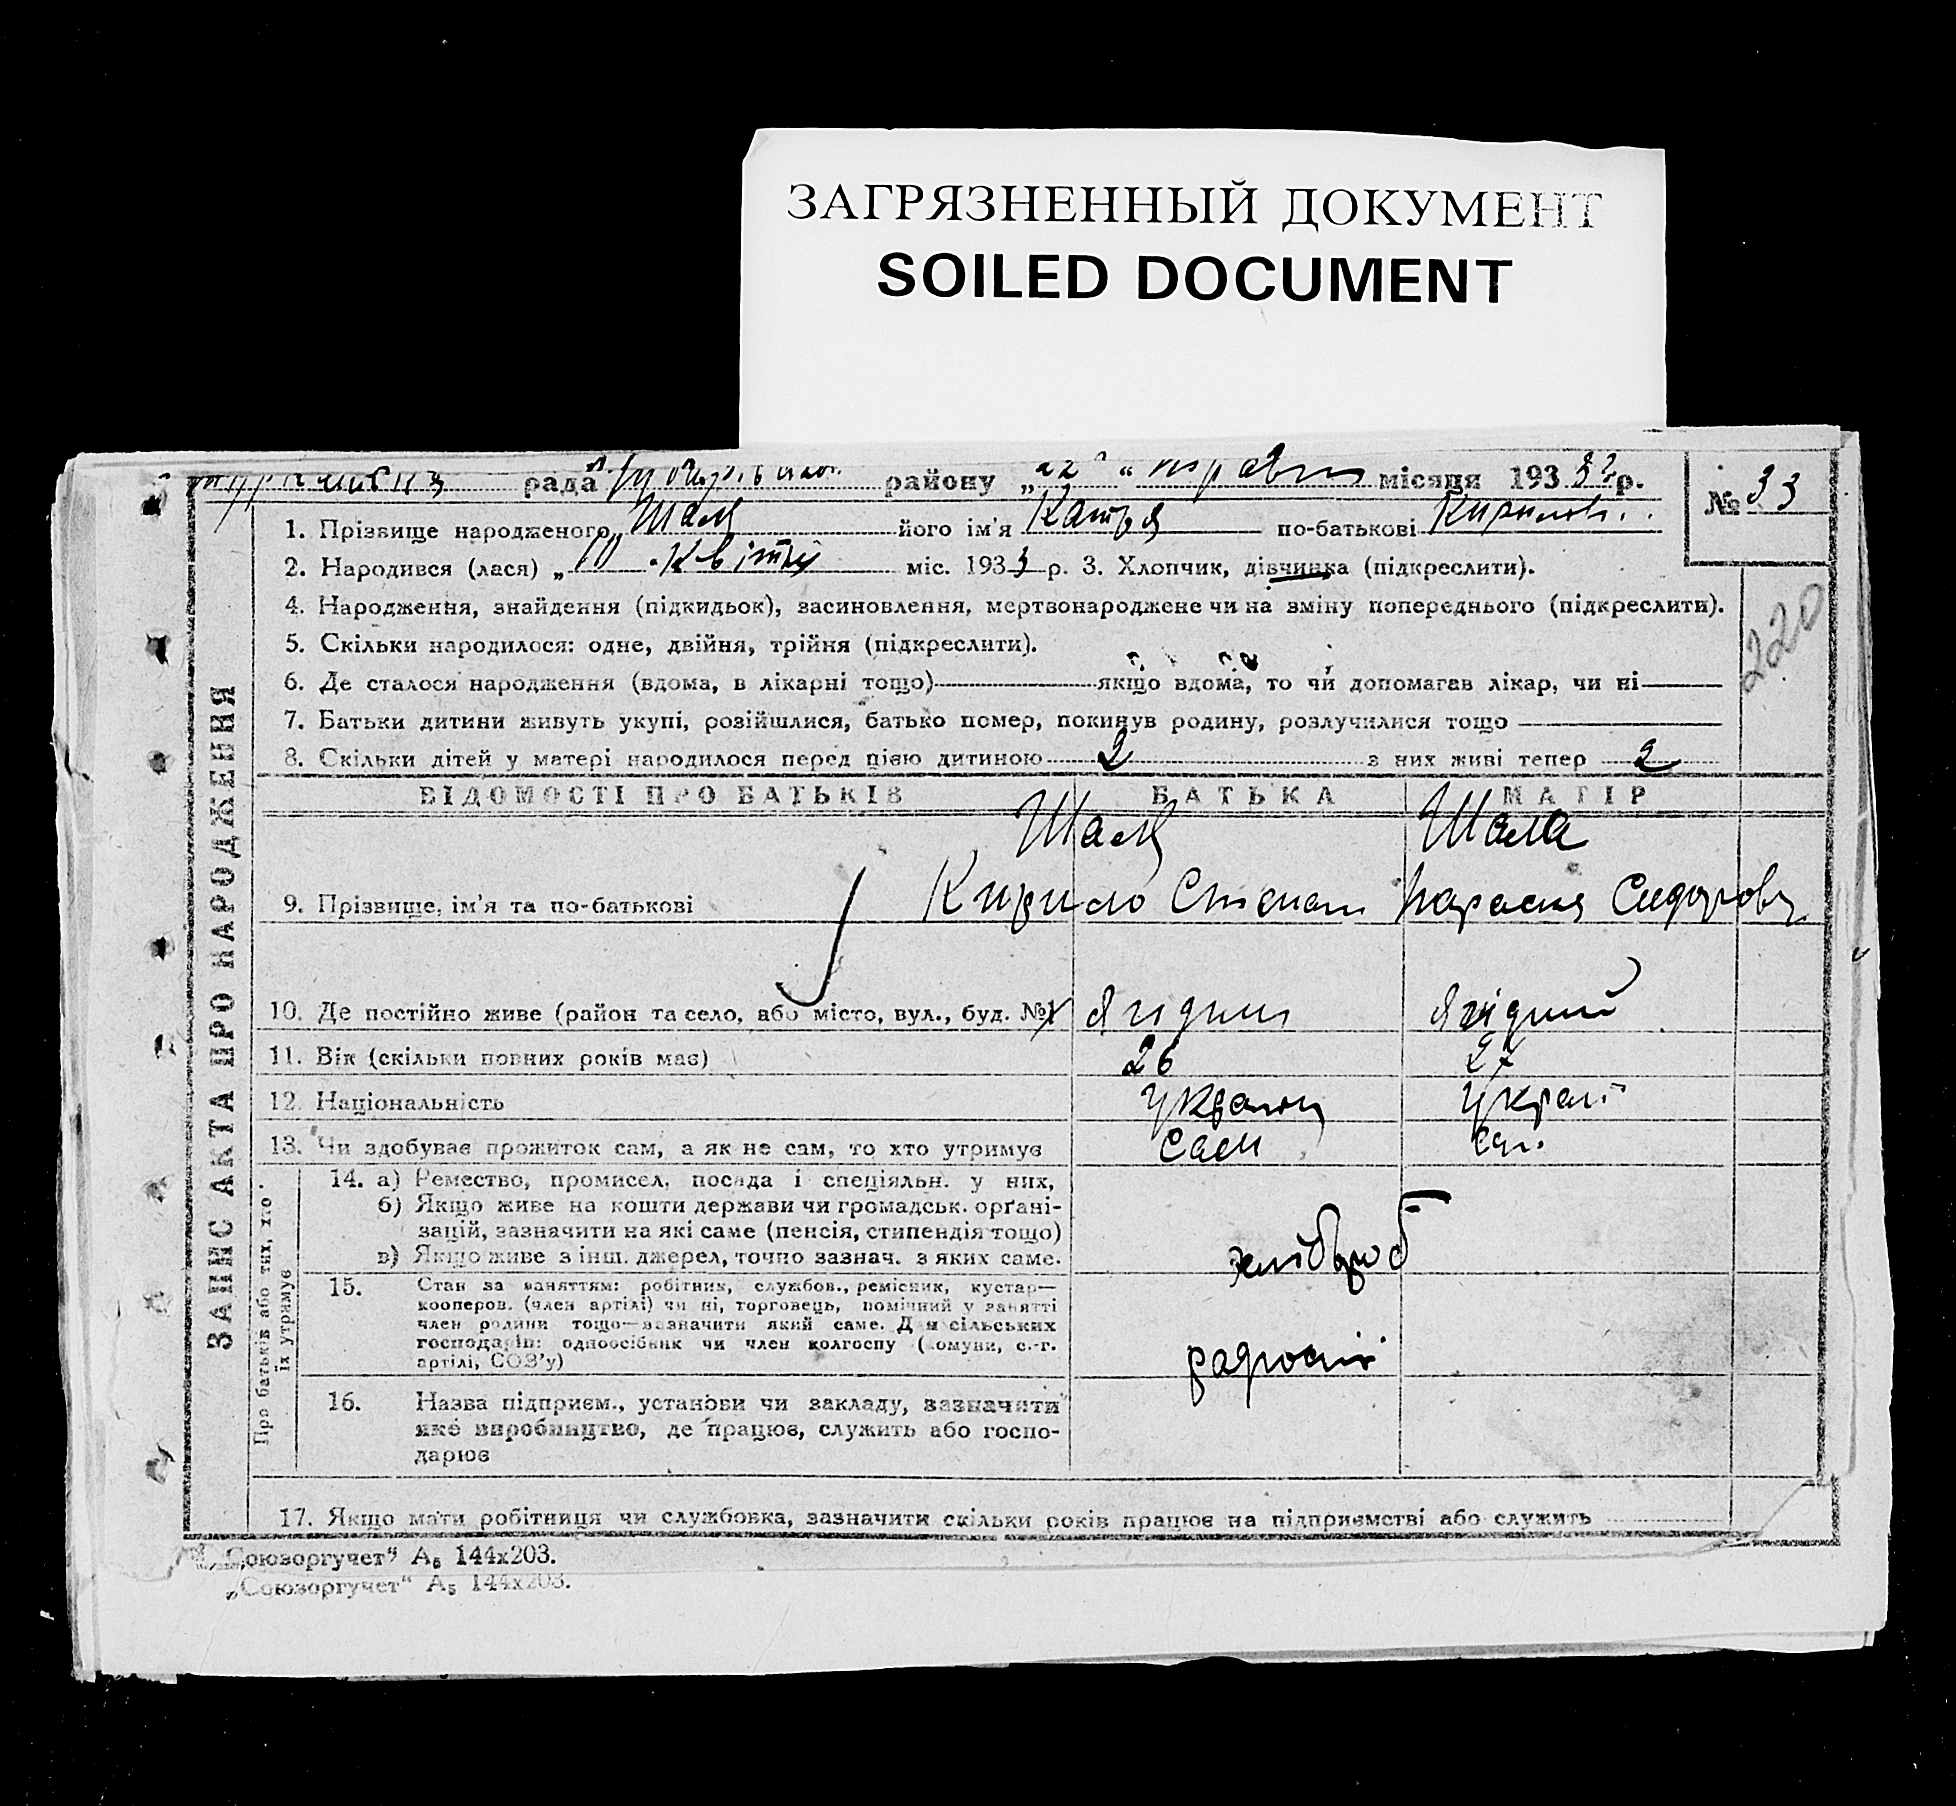 ЗАГРЯЗНЕННЫЙ ДОКУМЕНТ
SOILED DOCUMENT
рада району „22“ травня місяця 1933 р. № 33
1. Прізвище народженого його ім'я Катря по-батькові Кирилов..
2. Народився (лася) „10 Квітня міс. 1933 р. 3. Хлопчик, дівчинка (підкреслити).
4. Народження, знайдення (підкидьок), засиновлення, мертвонароджене чи на зміну попереднього (підкреслити).
220
5. Скільки народилося: одне, двійня, трійня (підкреслити).
6. Де сталося народження (вдома, в лікарні тощо) якщо вдома, то чи допомагав лікар, чи ні
7. Батьки дитини живуть укупі, розійшлися, батько помер, покинув родину, розлучилися тощо
8. Скільки дітей у матері народилося перед цією дитиною 2 з них живі тепер 2
ВІДОМОСТІ ПРО БАТЬКІВ БАТЬКА МАТІР
Шала
9. Прізвище, ім'я та по-батькові Кирило Степан Параска Сидоровн
10. Де постійно живе (район та село, або місто, вул., буд. №)
11. Вік (скільки повних років має) 26 27
12. Національність Украінц Украі
13. Чи здобуває прожиток сам, а як не сам, то хто утримує Сам сам.
14. а) Ремество, промисел, посада і спеціяльн. у них,
б) Якщо живе на кошти держави чи громадськ. орґані-
зацій, зазначити на які саме (пенсія, стипендія тощо)
в) Якщо живе з інш. джерел, точно зазнач. з яких саме.
хлібороб
15. Стан за заняттям: робітник, службов., ремісник, кустар—
кооперов. (член артілі) чи ні, торговець, помічний у занятті
член родини тощо—зазначити який саме. Для сільських
господарів: одноосібник чи член колгоспу (комуни, с.-г.
артілі, СОЗ'у)
16. Назва підприєм., установи чи закладу, зазначити
яке виробництво, де працює, служить або госпо-
дарює
17. Якщо мати робітниця чи службовка, зазначити скільки років працює на підприємстві або служить
ЗАПИС АКТА ПРО НАРОДЖЕННЯ
Про батьків або тих, х.о
їх утримує
„Союзоргучет“ А₅ 144х203.
„Союзоргучет“ А₅ 144х203.